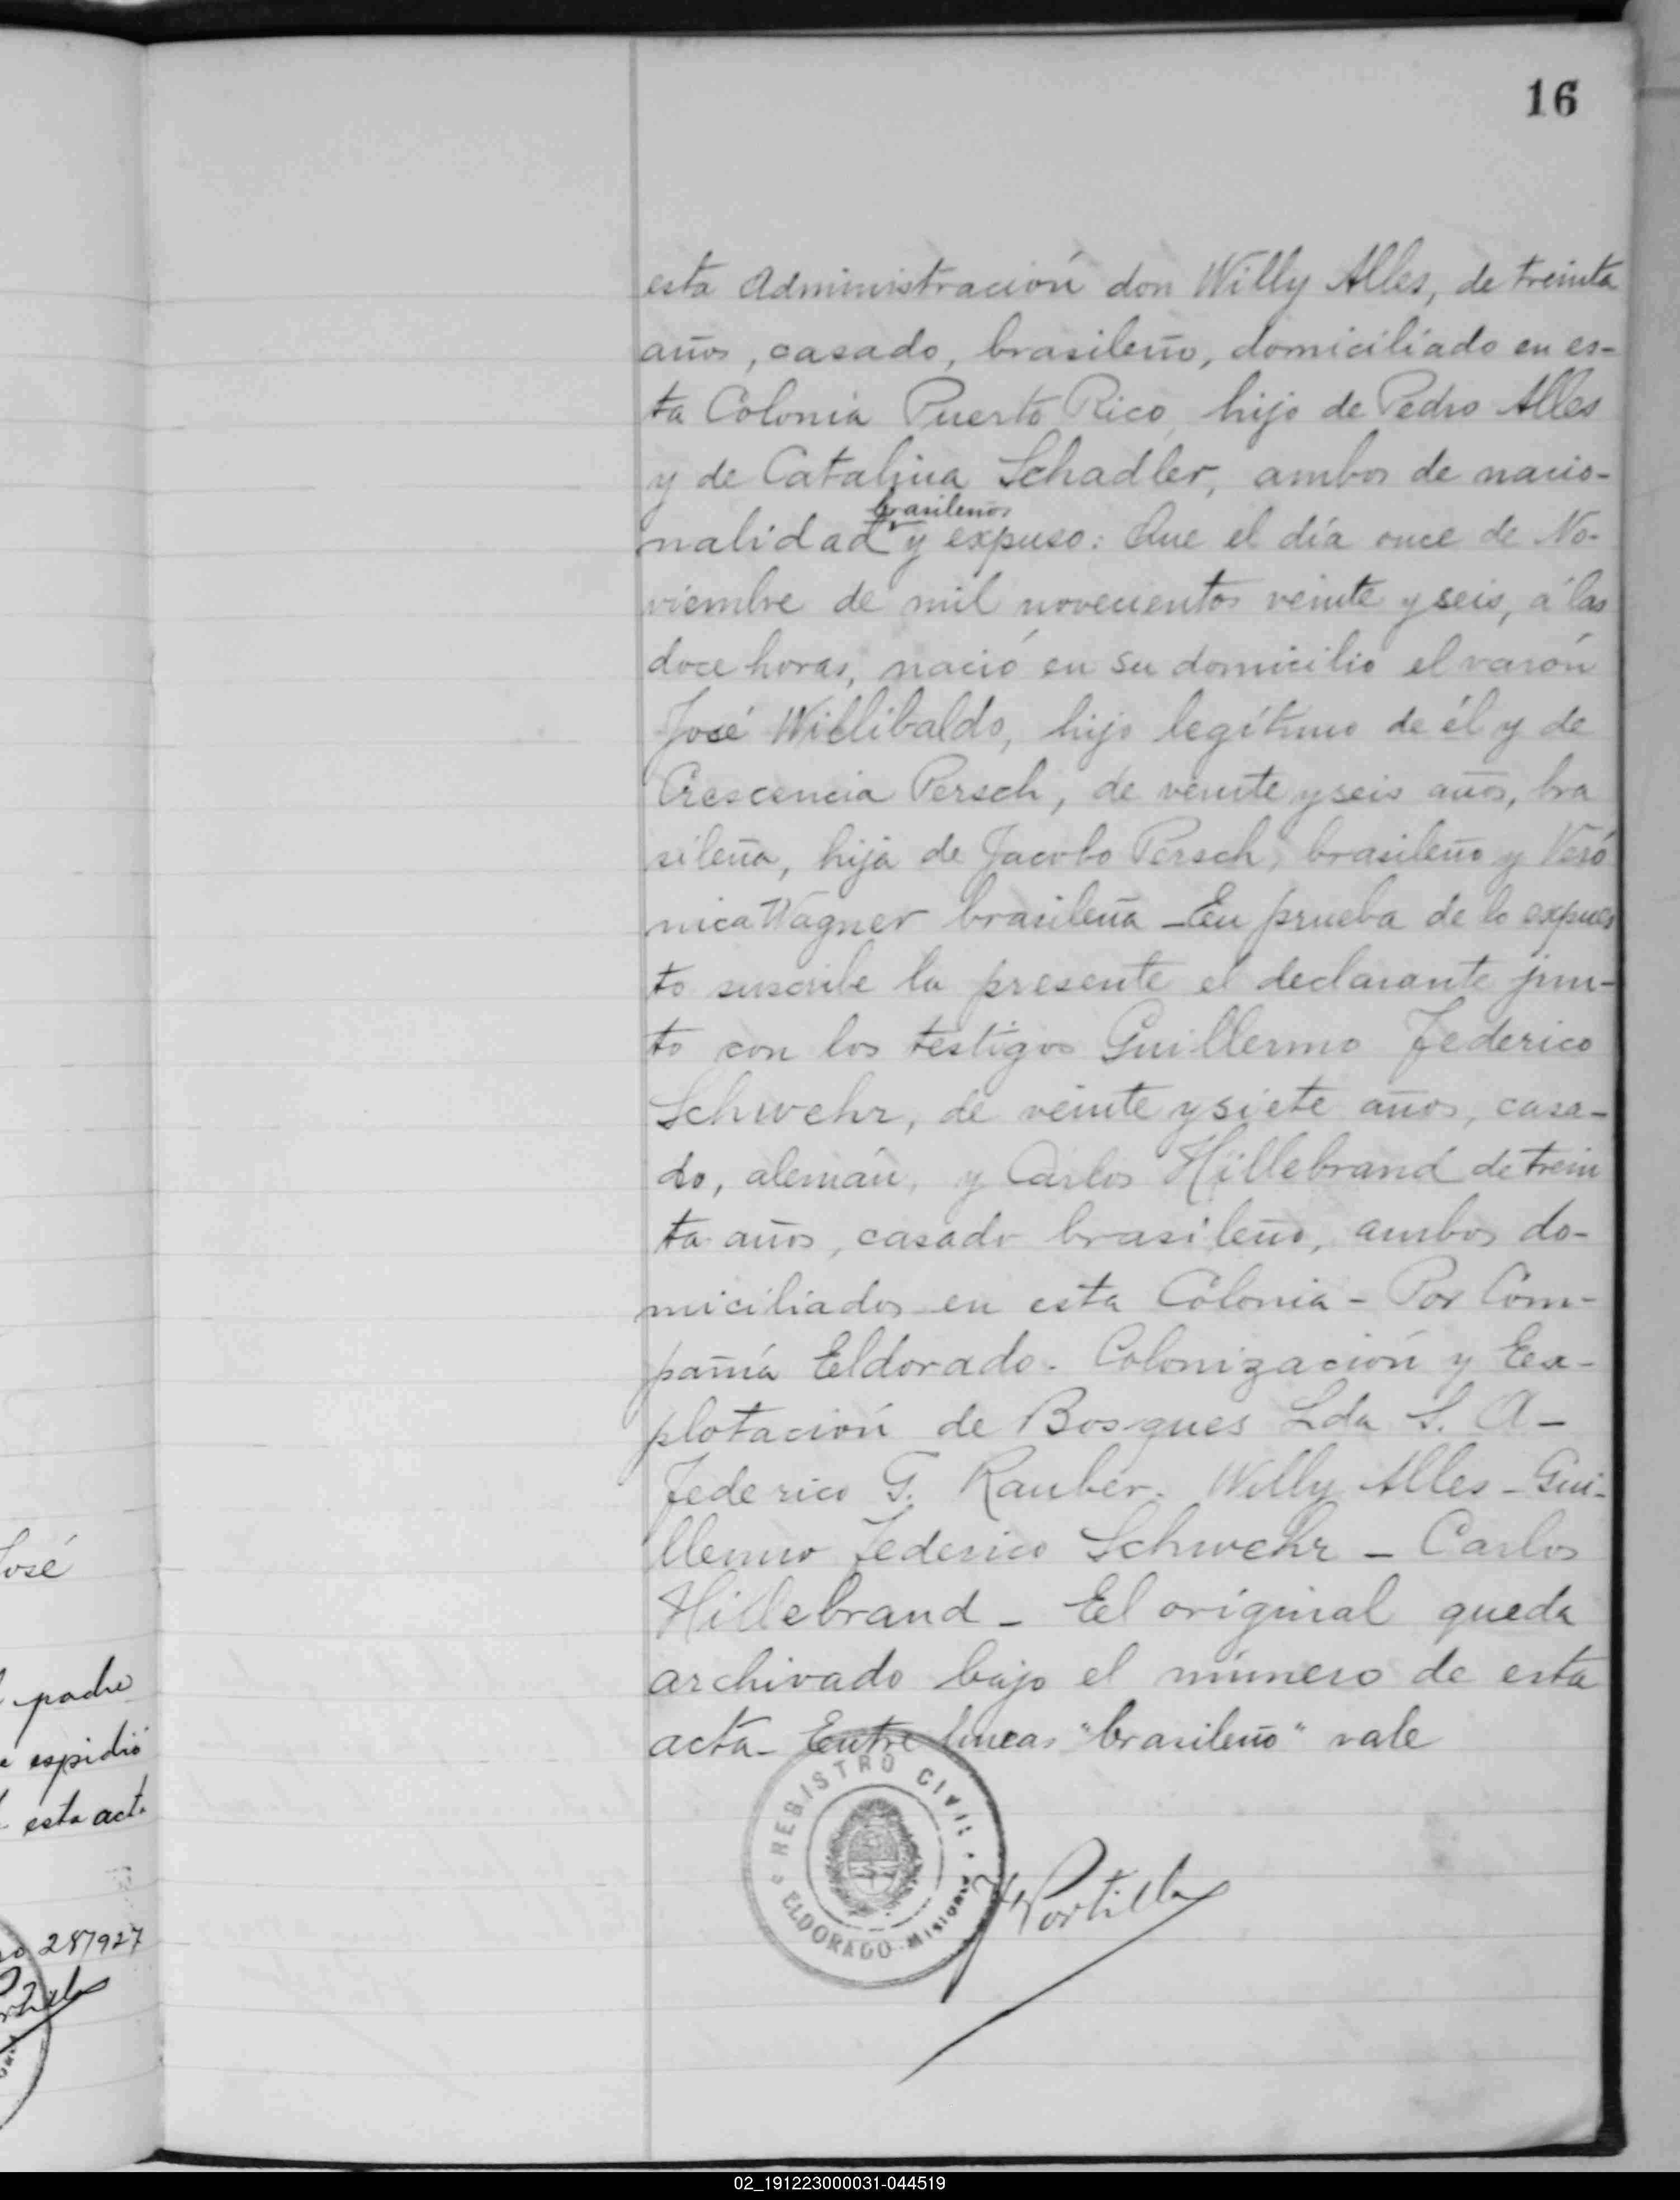 16
esta Administración don Willy Alles, de treinta
años, casado, brasileño, domiciliado en es-
ta Colonia Puerto Rico, hijo de Pedro Alles
y de Catalina Schadler, ambos de nacio-
brasileños
nalidad y expuso: Que el día once de No-
viembre de mil novecientos veinte y seis, á las
doce horas, nació en su domicilio el varón
José Willibaldo, hijo legítimo de él y de
Crescencia Persch, de veinte y seis años, bra
sileña, hija de Jacobo Persch, brasileño y Veró
nica Wagner brasileña - En prueba de lo expues
to suscribe la presente el declarante jun-
to con los testigos Guillermo Federico
Schwehr, de veinte y siete años, casa-
do, alemán, y Carlos Hillebrand de trein
ta años, casado brasileño, ambos do-
miciliados en esta Colonia - Por Com-
pañía Eldorado. Colonización y Ex-
plotación de Bosques Lda S. A -
Federico G. Rauber. Willy Alles - Gui-
llermo Federico Schwehr - Carlos
Hillebrand - El original queda
archivado bajo el número de esta
acta - Entre lineas "brasileño" vale
REGISTRO CIVIL
ELDORADO - MISIONES
Portilla
José
padre
espidió
esta acta
28/927
02_191223000031-044519